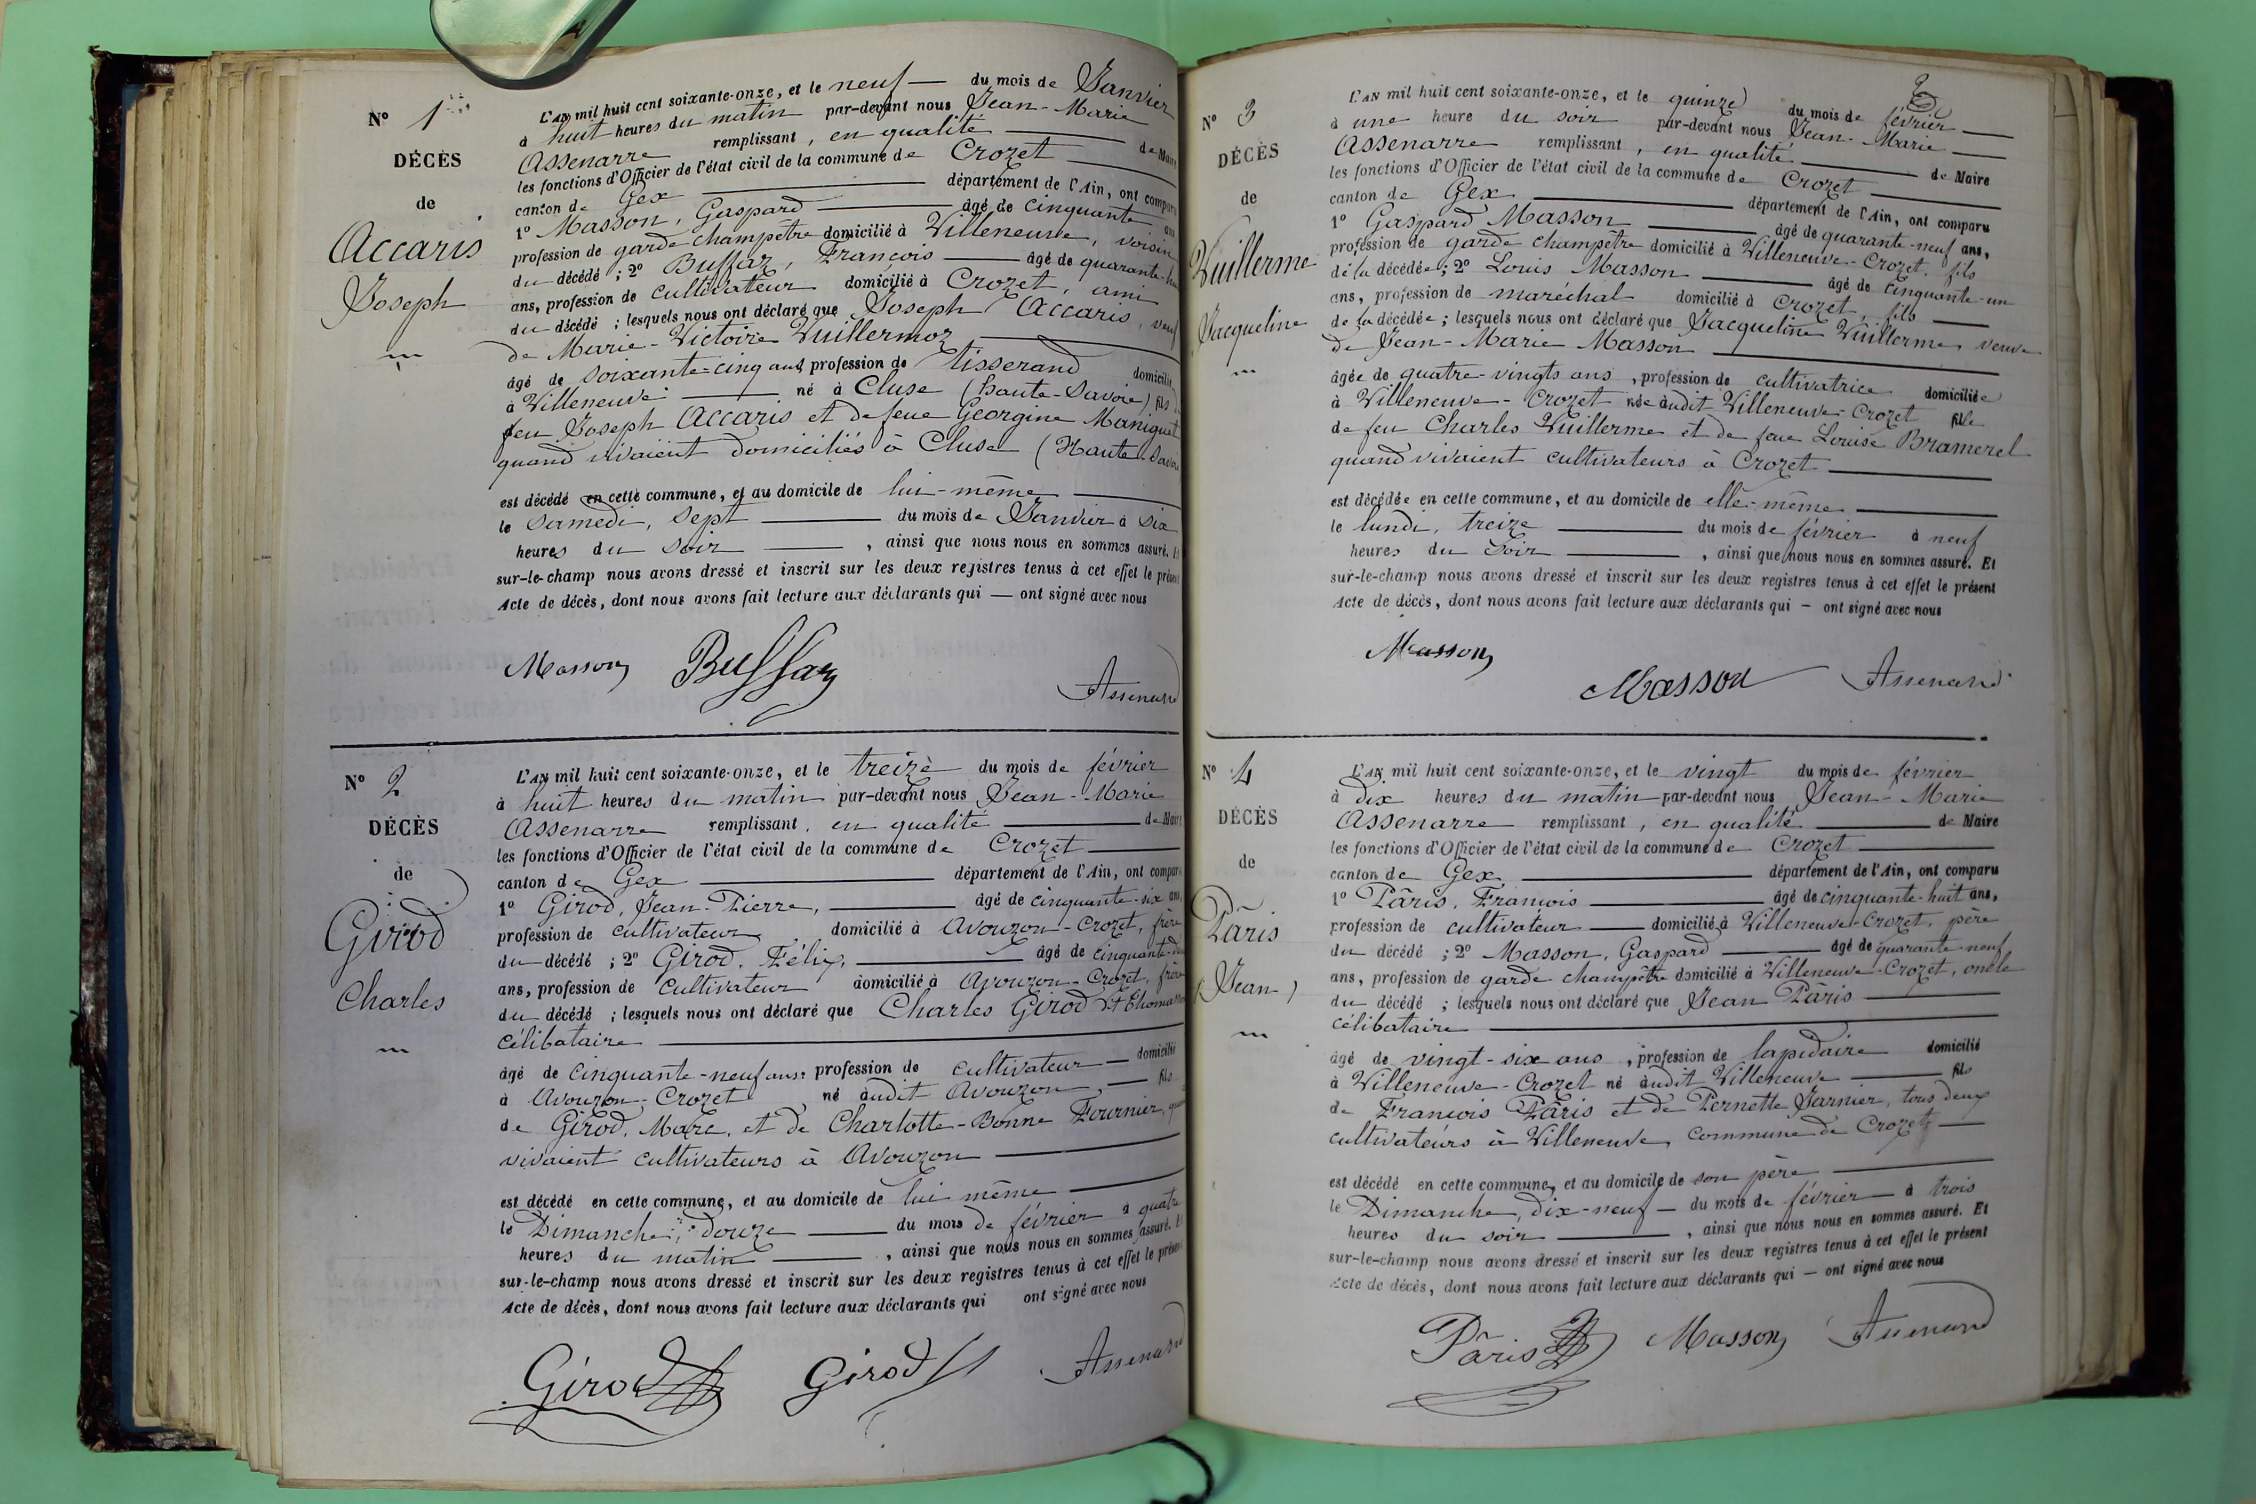 N° 1
DÉCÈS
de
Accaris
Joseph
L'AN mil huit cent soixante-onze, et le neuf du mois de Janvier
à huit heures du matin par-devant nous Jean-Marie
Assenarre remplissant, en qualité de Maire
les fonctions d'Officier de l'état civil de la commune de Crozet
canton de Gex département de l'Ain, ont comparu
1° Masson, Gaspard âgé de cinquante ans
profession de garde champêtre domicilié à Villeneuve, voisin
du décédé ; 2° Buffaz, François âgé de quarante-
ans, profession de cultivateur domicilié à Crozet, ami
du décédé ; lesquels nous ont déclaré que Joseph Accaris, veuf
de Marie-Victoire Vuillermoz
âgé de soixante-cinq ans, profession de tisserand domicilié
à Villeneuve né à Cluse (haute-Savoie), fils
feu Joseph Accaris et de feue Georgine Maniguet
quand vivaient domiciliés à Cluse (Haute-Savoie
est décédé en cette commune, et au domicile de lui-même
le Samedi, sept du mois de Janvier à six
heures du soir, ainsi que nous nous en sommes assuré. Et
sur-le-champ nous avons dressé et inscrit sur les deux registres tenus à cet effet le présent
Acte de décès, dont nous avons fait lecture aux déclarants qui — ont signé avec nous
Masson Buffaz Assenard
N° 2
DÉCÈS
de
Girod
Charles
L'AN mil huit cent soixante-onze, et le treize du mois de février
à huit heures du matin par-devant nous Jean-Marie
Assenarre remplissant, en qualité de Maire
les fonctions d'Officier de l'état civil de la commune de Crozet
canton de Gex département de l'Ain, ont comparu
1° Girod, Jean-Pierre, âgé de cinquante-six ans,
profession de cultivateur domicilié à Avouzon-Crozet, frère
du décédé ; 2° Girod, Félix, âgé de cinquante-
ans, profession de cultivateur domicilié à Avouzon-Crozet, frère
du décédé ; lesquels nous ont déclaré que Charles Girod
célibataire
âgé de cinquante-neuf ans, profession de cultivateur domicilié
à Avouzon-Crozet né audit Avouzon, fils
de Girod, Marc, et de Charlotte-Bonne Fournier, quand
vivaient cultivateurs à Avouzon
est décédé en cette commune, et au domicile de lui même
le Dimanche, douze du mois de février à quatre
heures du matin, ainsi que nous nous en sommes assuré. Et
sur-le-champ nous avons dressé et inscrit sur les deux registres tenus à cet effet le présent
Acte de décès, dont nous avons fait lecture aux déclarants qui ont signé avec nous
Girod Girod Assenard
3
N° 3
DÉCÈS
de
Vuillerme
Jacqueline
L'AN mil huit cent soixante-onze, et le quinze du mois de février
à une heure du soir par-devant nous Jean-Marie
Assenarre remplissant, en qualité de Maire
les fonctions d'Officier de l'état civil de la commune de Crozet
canton de Gex département de l'Ain, ont comparu
1° Gaspard Masson âgé de quarante-neuf ans,
profession de garde champêtre domicilié à Villeneuve-Crozet, fils
de la décédée ; 2° Louis Masson âgé de cinquante-un
ans, profession de maréchal domicilié à Crozet, fils
de la décédée ; lesquels nous ont déclaré que Jacqueline Vuillerme, veuve
de Jean-Marie Masson
âgée de quatre-vingts ans, profession de cultivatrice domiciliée
à Villeneuve-Crozet née audit Villeneuve-Crozet fille
de feu Charles Vuillerme et de feue Louise Bramerel
quand vivaient cultivateurs à Crozet
est décédée en cette commune, et au domicile de elle-même
le lundi, treize du mois de février à neuf
heures du soir, ainsi que nous nous en sommes assuré. Et
sur-le-champ nous avons dressé et inscrit sur les deux registres tenus à cet effet le présent
Acte de décès, dont nous avons fait lecture aux déclarants qui — ont signé avec nous
Masson Masson Assenard
N° 4
DÉCÈS
de
Pâris
Jean
L'AN mil huit cent soixante-onze, et le vingt du mois de février
à dix heures du matin par-devant nous Jean-Marie
Assenarre remplissant, en qualité de Maire
les fonctions d'Officier de l'état civil de la commune de Crozet
canton de Gex département de l'Ain, ont comparu
1° Pâris, François âgé de cinquante-huit ans,
profession de cultivateur domicilié à Villeneuve-Crozet, père
du décédé ; 2° Masson, Gaspard âgé de quarante-neuf
ans, profession de garde champêtre domicilié à Villeneuve-Crozet, oncle
du décédé ; lesquels nous ont déclaré que Jean Pâris
célibataire
âgé de vingt-six ans, profession de lapidaire domicilié
à Villeneuve-Crozet né audit Villeneuve fils
de François Pâris et de Pernette Jarnier, tous deux
cultivateurs à Villeneuve, commune de Crozet
est décédé en cette commune, et au domicile de son père
le Dimanche, dix-neuf du mois de février à trois
heures du soir, ainsi que nous nous en sommes assuré. Et
sur-le-champ nous avons dressé et inscrit sur les deux registres tenus à cet effet le présent
Acte de décès, dont nous avons fait lecture aux déclarants qui — ont signé avec nous
Pâris Masson Assenard